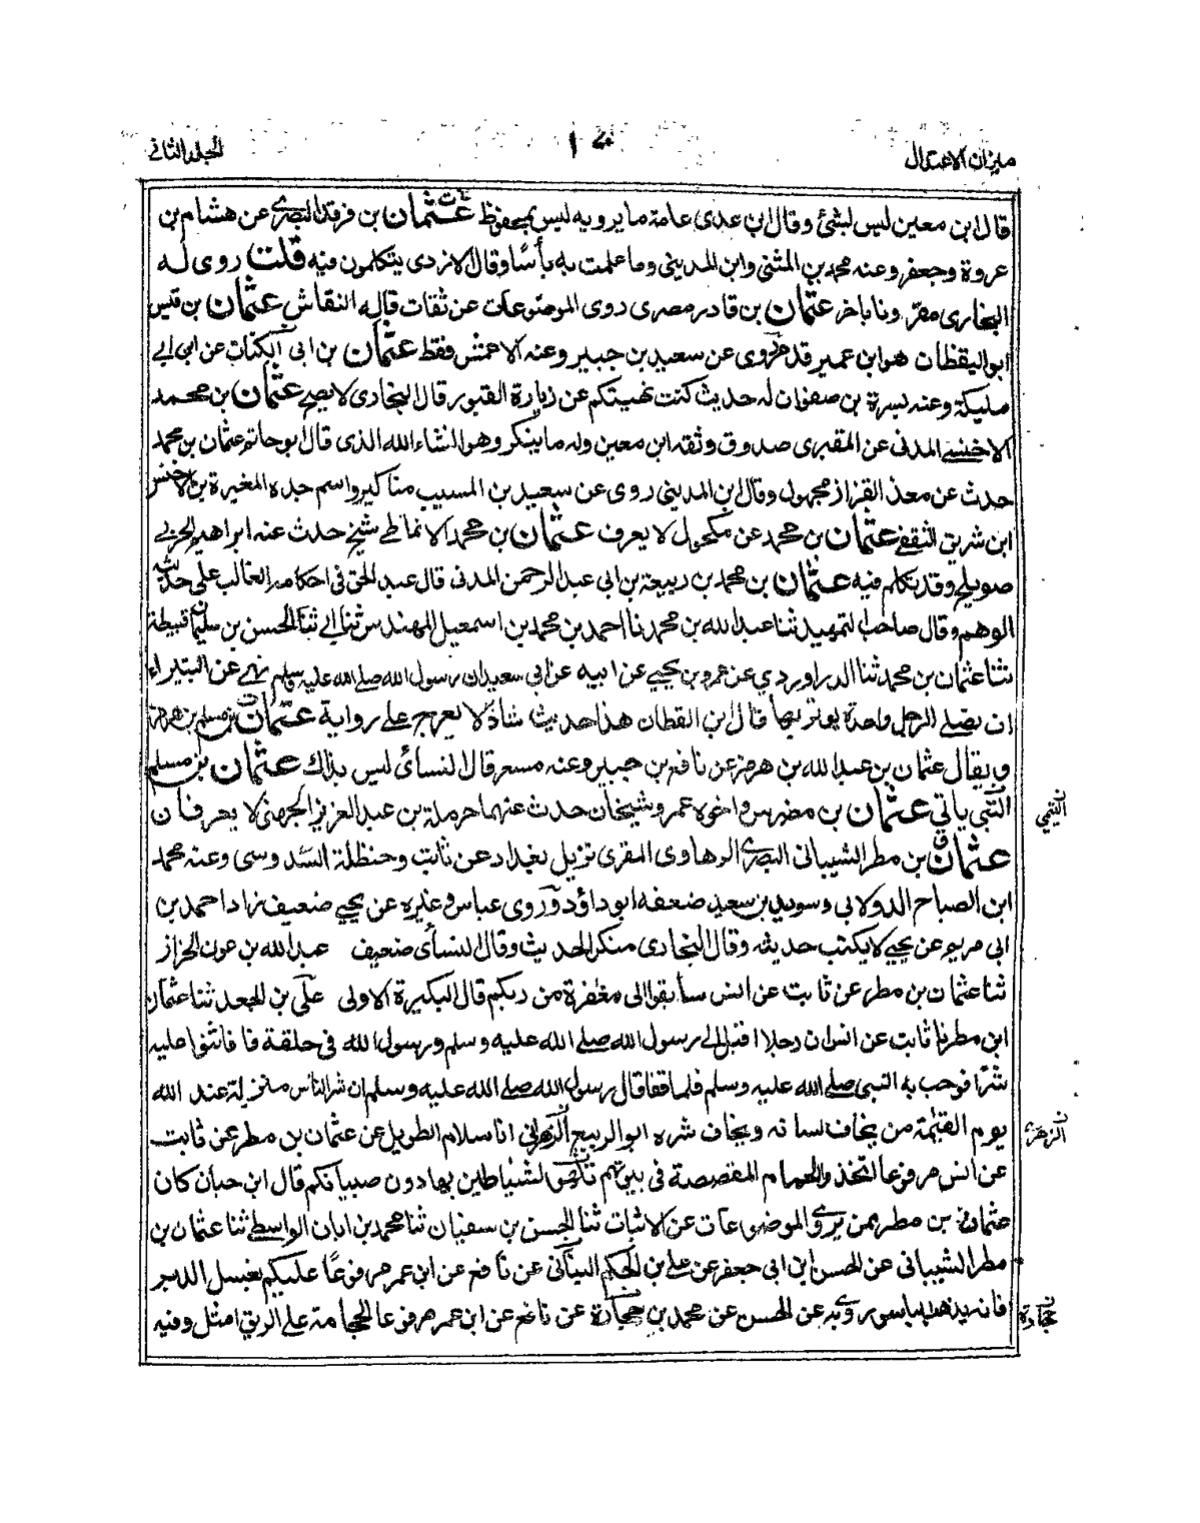 ميزان الاعتدال
المجلد الثاني
قال ابن معين ليس لبشئ وقال ابن عدى عامة ما يرويه ليس بمحفوظ عثمان بن فرقد البصرى عن هشام بن
عروة وجعفر وعنه محمد بن المثنى وابن المديني وما علمت به بأسا وقال الازدى يتكلمون فيه قلت روى له
البخارى مقرونا باخر عثمان بن قادر مصرى روى الموضوعات عن ثقات قاله النقاش عثمان بن قيس
ابو اليقظان هو ابن عمير قد مر وروى عن سعيد بن جبير وعنه الاعمش فقط عثمان بن ابى الكنات عن ابى ابي
مليكة وعنه بسرة بن صفوان له حديث كنت نهيتكم عن زيارة القبور قال البخارى لا يصح عثمان بن محمد
الاخنسي المدنى عن المقبرى صدوق وثقه ابن معين وله ما ينكر وهو انشاء الله الذى قال ابو حاتم عثمان بن محمد
حدث عن معذ القزاز مجهول وقال ابن المديني روى عن سعيد بن المسيب مناكير واسم جده المغيرة بن الاخنس
ابن شريق الثقفى عثمان بن محمد عن مكحول لا يعرف عثمان بن محمد الانماطي شيخ حدث عنه ابراهيم الحربي
صويلح وقد تكلم فيه عثمان بن محمد بن ربيعة بن ابى عبد الرحمن المدنى قال عبد الحق فى احكامه الغالب على حديثه
الوهم وقال صاحب التمهيد ثنا عبد الله بن محمد نا احمد بن محمد بن اسمعيل المهندس ثنا ابي ثنا الحسن بن سليمان قبيطة
ثنا عثمان بن محمد ثنا الدراوردي عن عمرو بن يحيي عن ابيه عن ابي سعيد ان رسول الله صلى الله عليه وسلم نهى عن البتيراء
ان يصلى الرجل واحدة يوتر بها قال ابن القطان هذا حديث شاذ لا يعرج على رواية عثمان بن مسلم بن هرمز
ويقال عثمان بن عبد الله بن هرمز عن نافع بن جبير وعنه مسعر قال النسائى ليس بذاك عثمان بن مسلم
البتي ياتي عثمان بن مضرس واخوه عمرو شيخان حدث عنهما حرملة بن عبد العزيز الجهنى لا يعرفان
التيمي
عثمان بن مطر الشيبانى البصرى الرهاوى المقرى نزيل بغداد عن ثابت وحنظلة السدوسى وعنه محمد
ابن الصباح الدولابي وسويد بن سعيد ضعفه ابو داؤد وروى عباس وغيره عن يحيى ضعيف زاد احمد بن
ابى مريم عن يحيى لا يكتب حديثه وقال البخارى منكر الحديث وقال النسأى ضعيف عبد الله بن عون الخراز
ثنا عثمان بن مطر عن ثابت عن انس سابقوا الى مغفرة من ربكم قال التكبيرة الاولى على بن الجعد ثنا عثمان
ابن مطر نا ثابت عن انس ان رجلا اقبل الى رسول الله صلى الله عليه وسلم ورسول الله فى حلقة فا فاثنوا عليه
شرا فرحب به النبى صلى الله عليه وسلم فلما قفا قال رسول الله صلى الله عليه وسلم ان شر الناس منزلة عند الله
يوم القيمة من يخاف لسانه ويخاف شره ابو الربيع الزهرانى انا سلام الطويل عن عثمان بن مطر عن ثابت
الزهرى
عن انس مرفوعا اتخذوا الحمام المقصصة فى بيوتكم تلهى الشياطين بها دون صبيانكم قال ابن حبان كان
عثمان بن مطر ممن يروى الموضوعات عن الاثبات ثنا الحسن بن سفيان ثنا محمد بن ابان الواسطي ثنا عثمان بن
مطر الشيبانى عن الحسن ابن ابى جعفر عن على بن الحكم البناني عن نافع عن ابن عمر مرفوعًا عليكم بغسل الدبر
فانه يذهب بالباسور وبه عن الحسن عن محمد بن جحادة عن نافع عن ابن عمر مرفوعا الحجامة على الريق امثل وفيه
جحادة